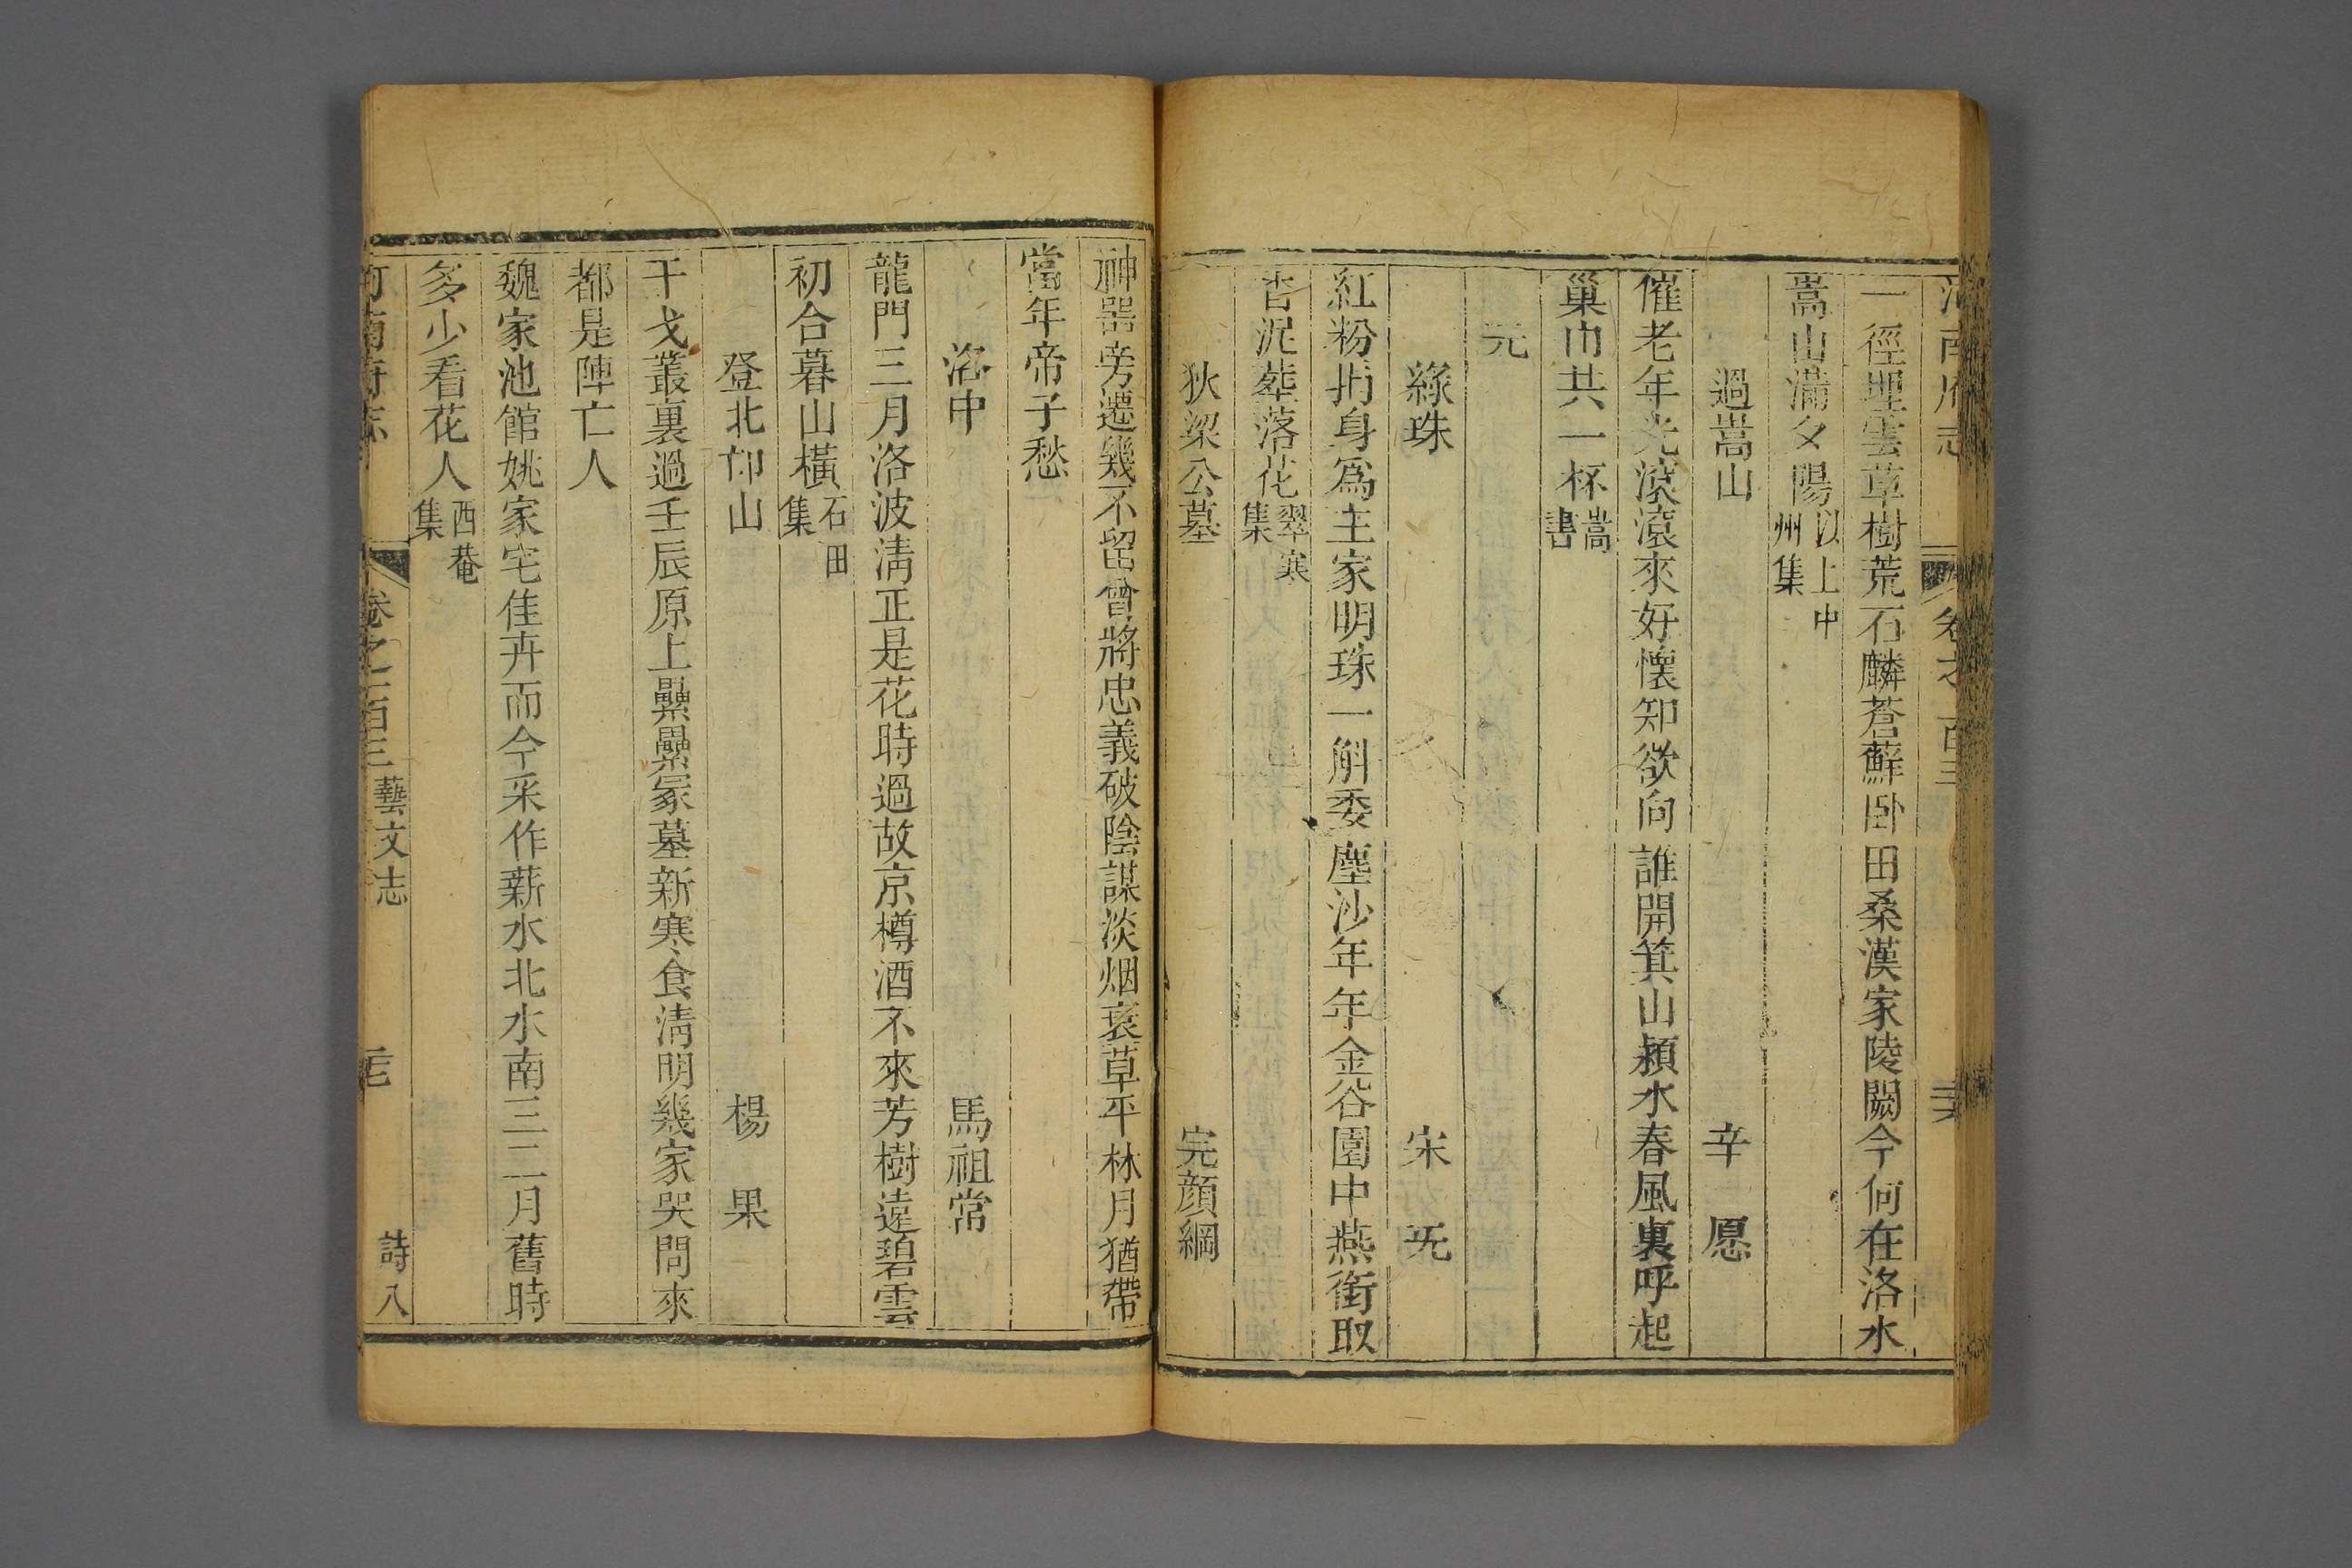 一徑埋雲草樹荒石麟蒼蘚卧田桑漢家陵闕今何在洛水
嵩山滿夕陽以上中州集
過嵩山 辛愿
催老年光滾滾來好懷知欲向誰開箕山潁水春風裏呼起
巢由共一杯嵩書
元
綠珠 宋旡
紅粉捐身為主家明珠一斛委塵沙年年金谷園中燕銜取
香泥葬落花翠寒集
狄梁公墓 完顔綱
神器旁遷幾不留曾將忠義破陰謀淡烟衰草平林月猶帶
當年帝子愁
洛中 馬祖常
龍門三月洛波淸正是花時過故京樽酒不來芳樹遠碧雲
初合暮山橫石田集
登北邙山 楊果
干戈叢裏過壬辰原上纍纍冢墓新寒食淸明幾家哭問來
都是陣亡人
魏家池館姚家宅佳卉而今采作薪水北水南三二月舊時
多少看花人西菴集
河南府志 卷之一百三 藝文志 詩八